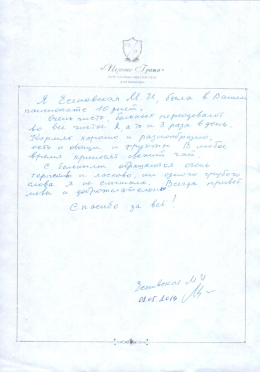 Я Есиповская М. И, была в Вашем
пансионате 10 дней.
Очень чисто, больных переодевают
во все чистое 2, а то и 3 раза в день.
Кормят хорошо и разнообразно,
есть и овощи и фрукты. В любое
время приносят свежий чай.
С больными обращаются очень
терпеливо и ласково, ни одного грубого
слова я не слышала. Всегда привет
ливы и доброжелательны.
Спасибо за всё!
М И